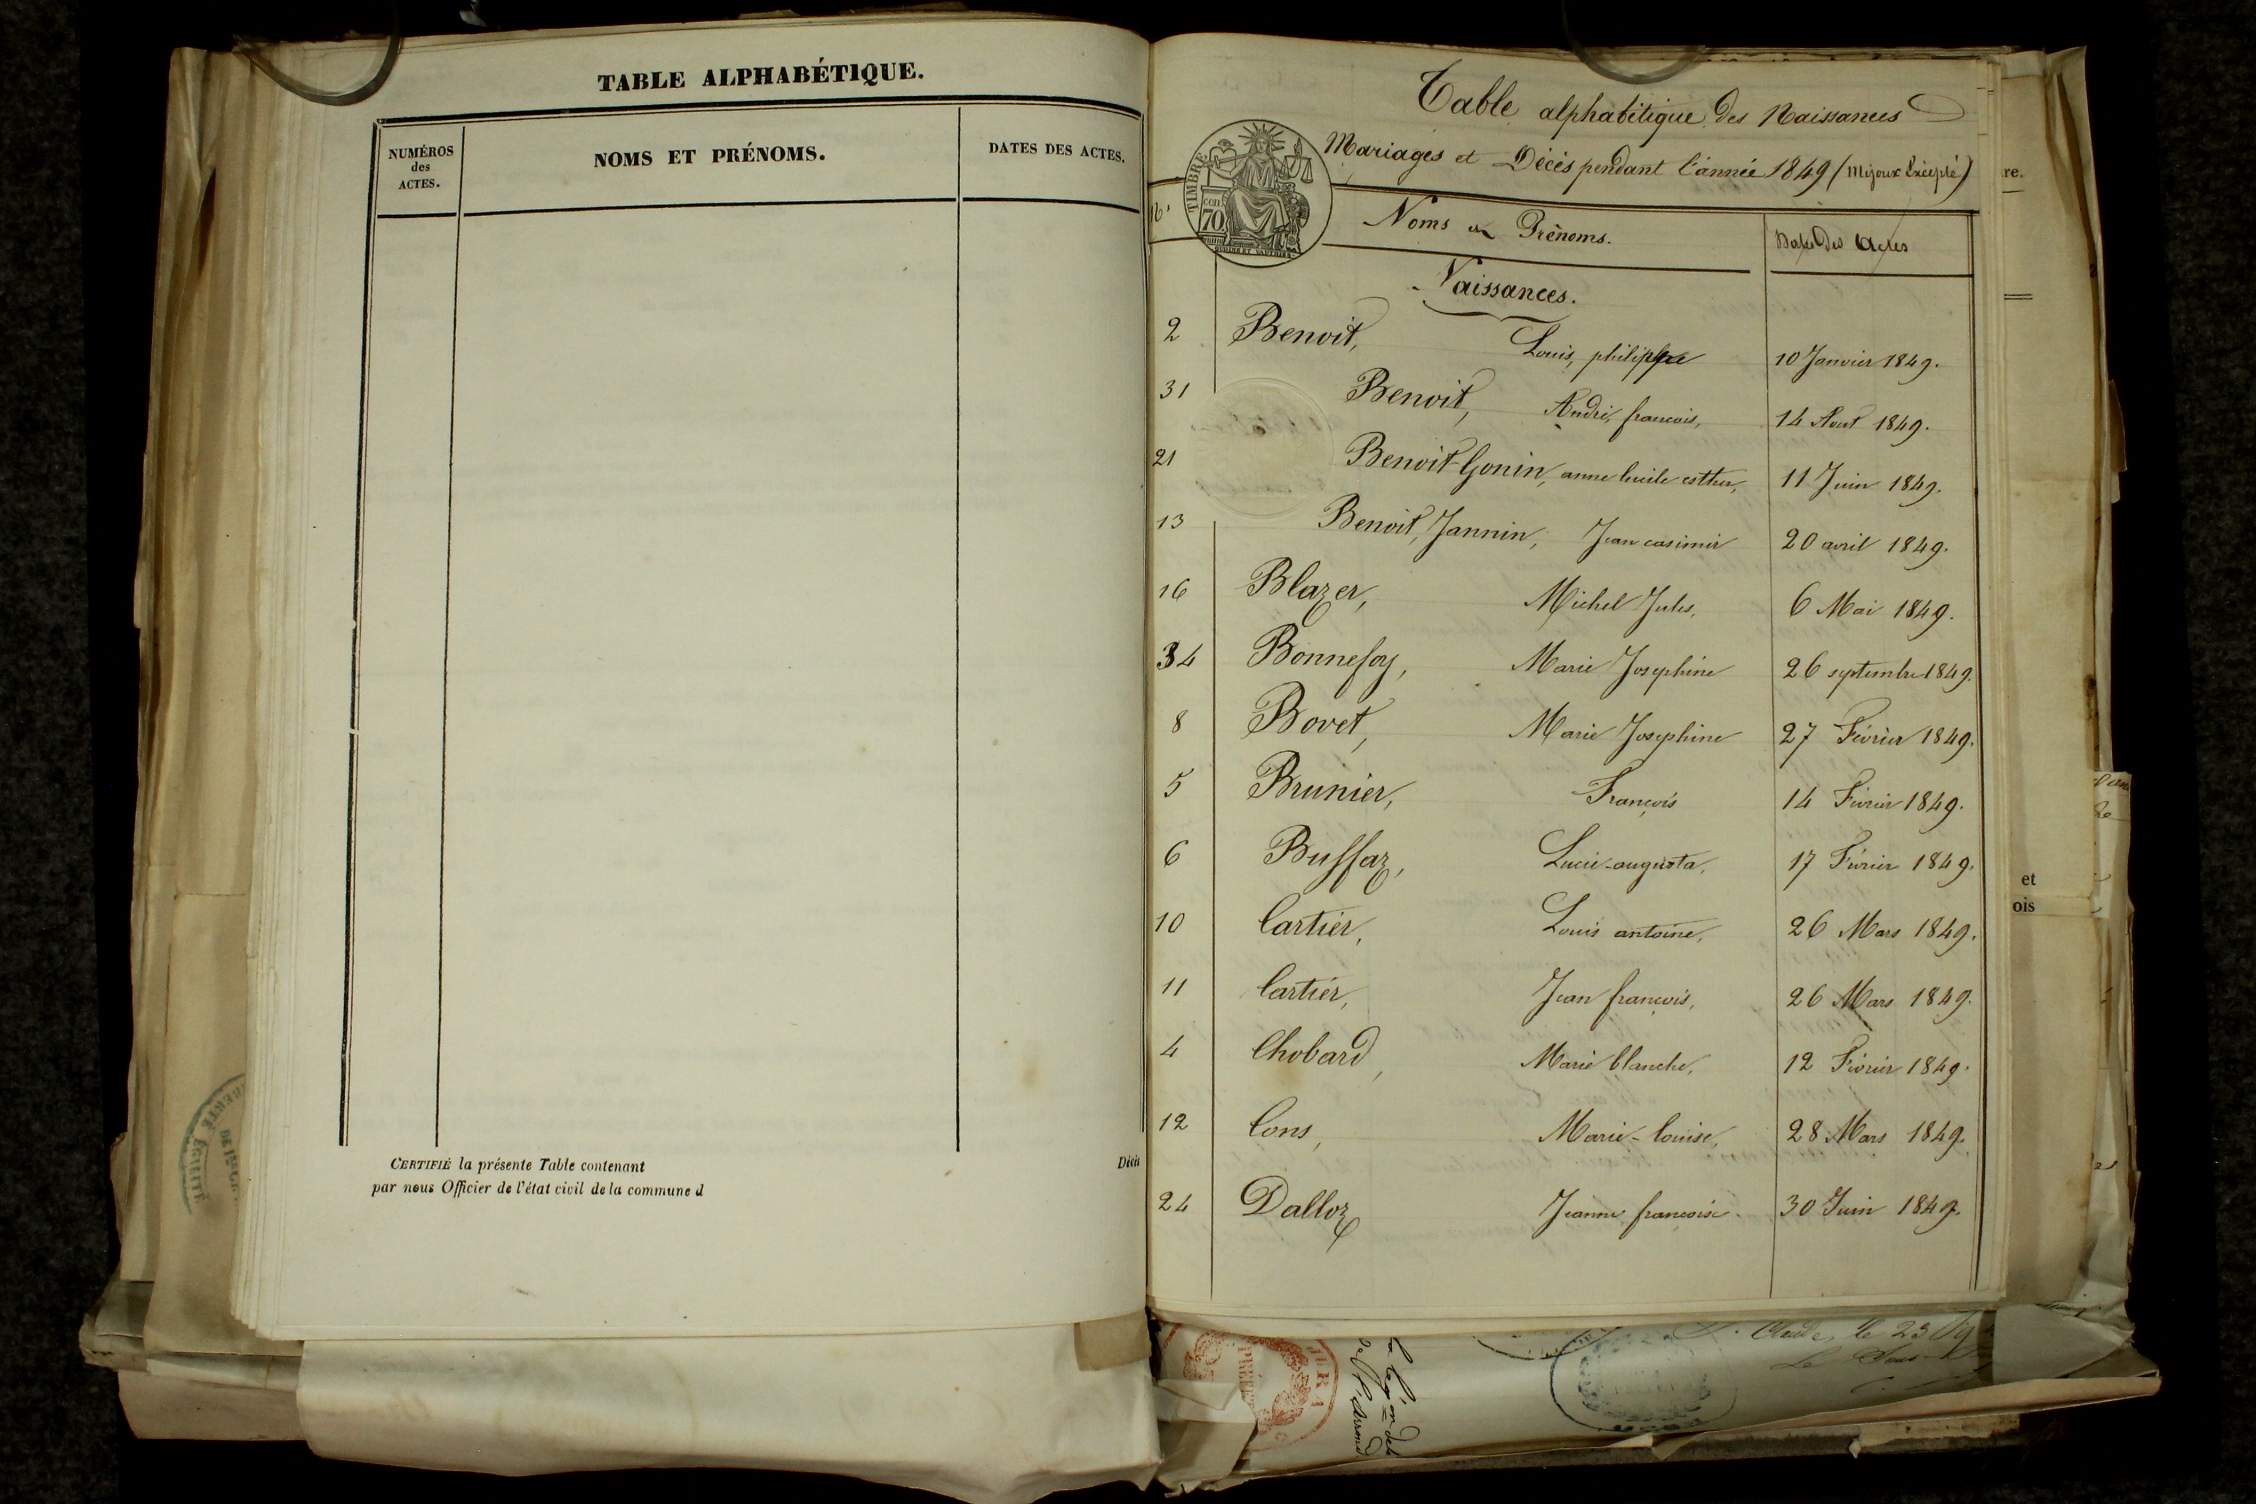 TABLE ALPHABÉTIQUE.
NUMÉROS
des
ACTES.
NOMS ET PRÉNOMS.
DATES DES ACTES.
CERTIFIÉ la présente Table contenant
par nous Officier de l'état civil de la commune d
Table alphabétique des Naissances
Mariages et Décès pendant l'année 1849 (Mijoux ExCepté)
TIMBRE
70
Noms et Prénoms.
Date des Actes
Naissances.
2 Benoit, Louis, philippe 10 Janvier 1849.
31 Benoit, André, francois, 14 Aout 1849.
21 Benoit-Gonin, anne lucile esther, 11 Juin 1849.
13 Benoit, Jannin, Jean casimir 20 avril 1849.
16 Blazer, Michel Jules, 6 Mai 1849.
34 Bonnefoy, Marie Josephine 26 septembre 1849.
8 Bovet, Marie Josephine 27 Février 1849.
5 Brunier, François 14 Février 1849.
6 Buffaz, Lucie-augusta, 17 Février 1849.
10 Cartier, Louis antoine, 26 Mars 1849.
11 Cartier, Jean françois, 26 Mars 1849.
4 Chobard, Marie blanche, 12 Février 1849.
12 Cons, Marie-louise, 28 Mars 1849.
24 Dalloz Jeanne françoise 30 Juin 1849.
re.
et
ois
JURA